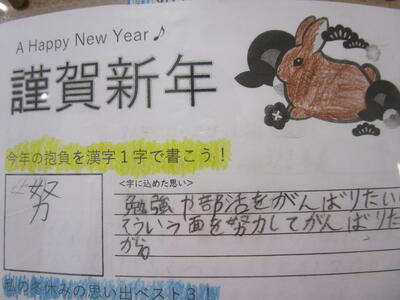 A Happy New Year♪
謹賀新年
今年の抱負を漢字1字で書こう!
努
<字に込めた思い>
勉強や部活をがんばりたい
そういう面を努力してがんばりた
から
私の冬休みの思い出ベスト3!